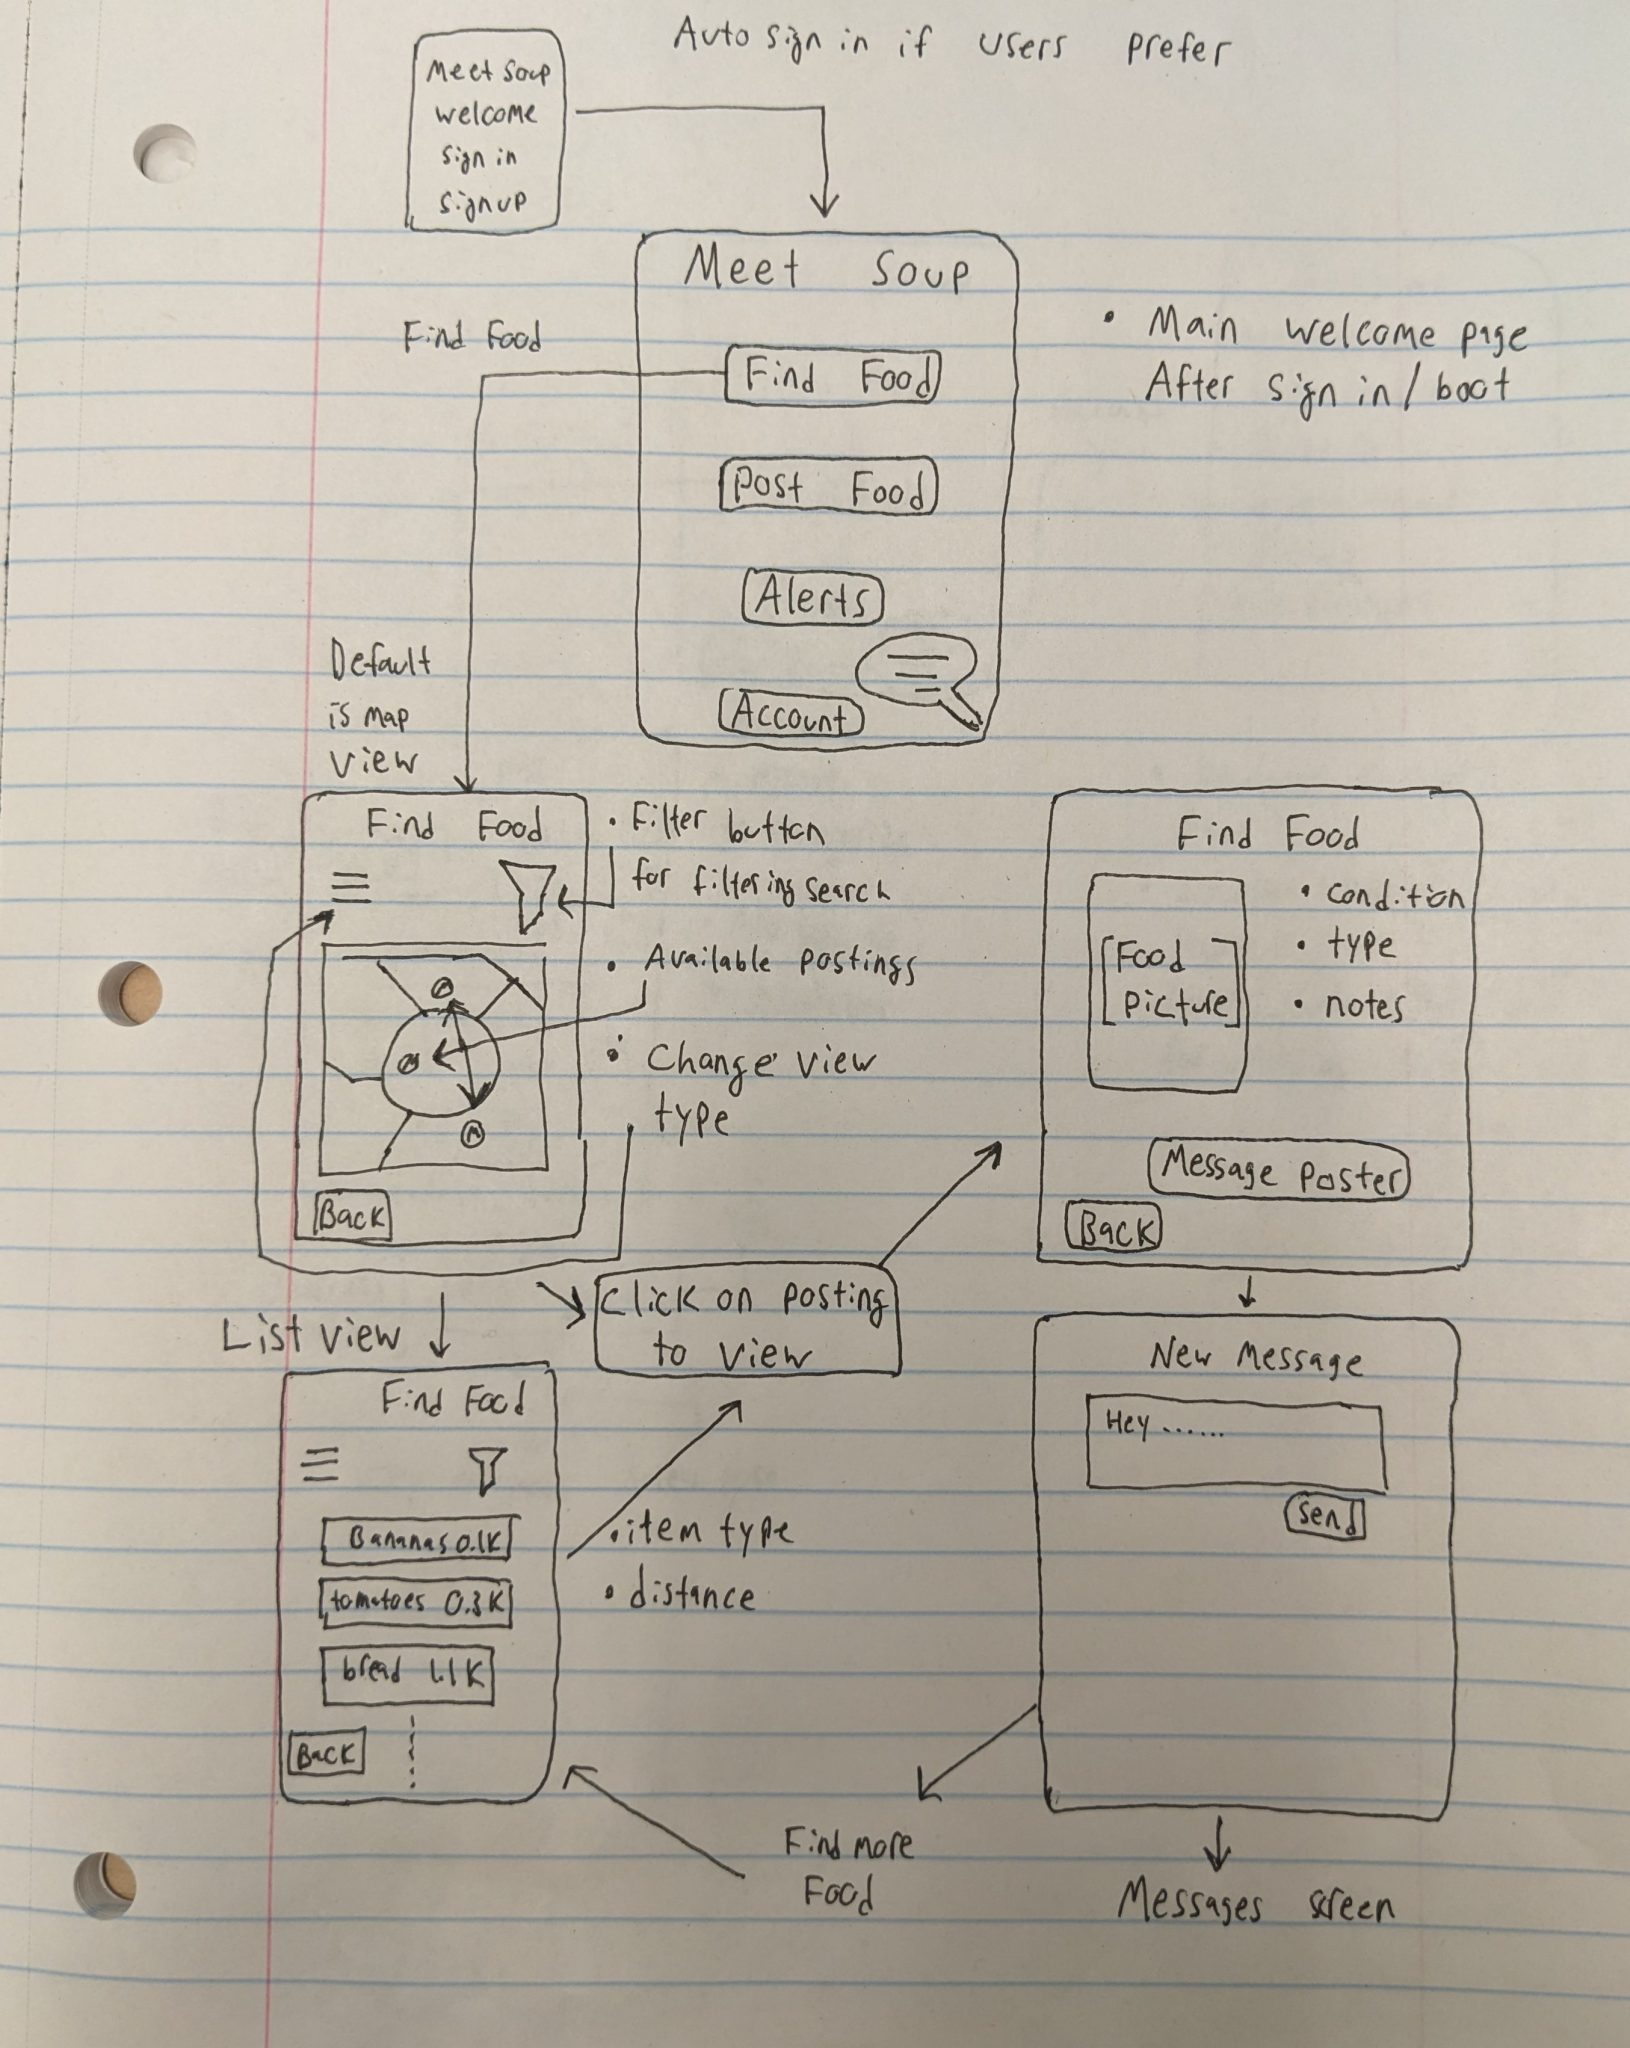 Auto sign in if users prefer
Meet Soup
welcome
sign in
signup
Meet Soup
Find Food
Find Food
Post Food
Alerts
Account
• Main welcome page
After sign in / boot
Default
is map
view
Find Food
Back
• Filter button
for filtering search
• Available postings
• Change view
type
Find Food
[Food
picture]
• condition
• type
• notes
Message poster
Back
Click on posting
to view
List view
Find Food
Bananas 0.1K
tomatoes 0.3K
bread 1.1K
Back
• item type
• distance
New Message
Hey ......
Send
Find more
Food
Messages screen